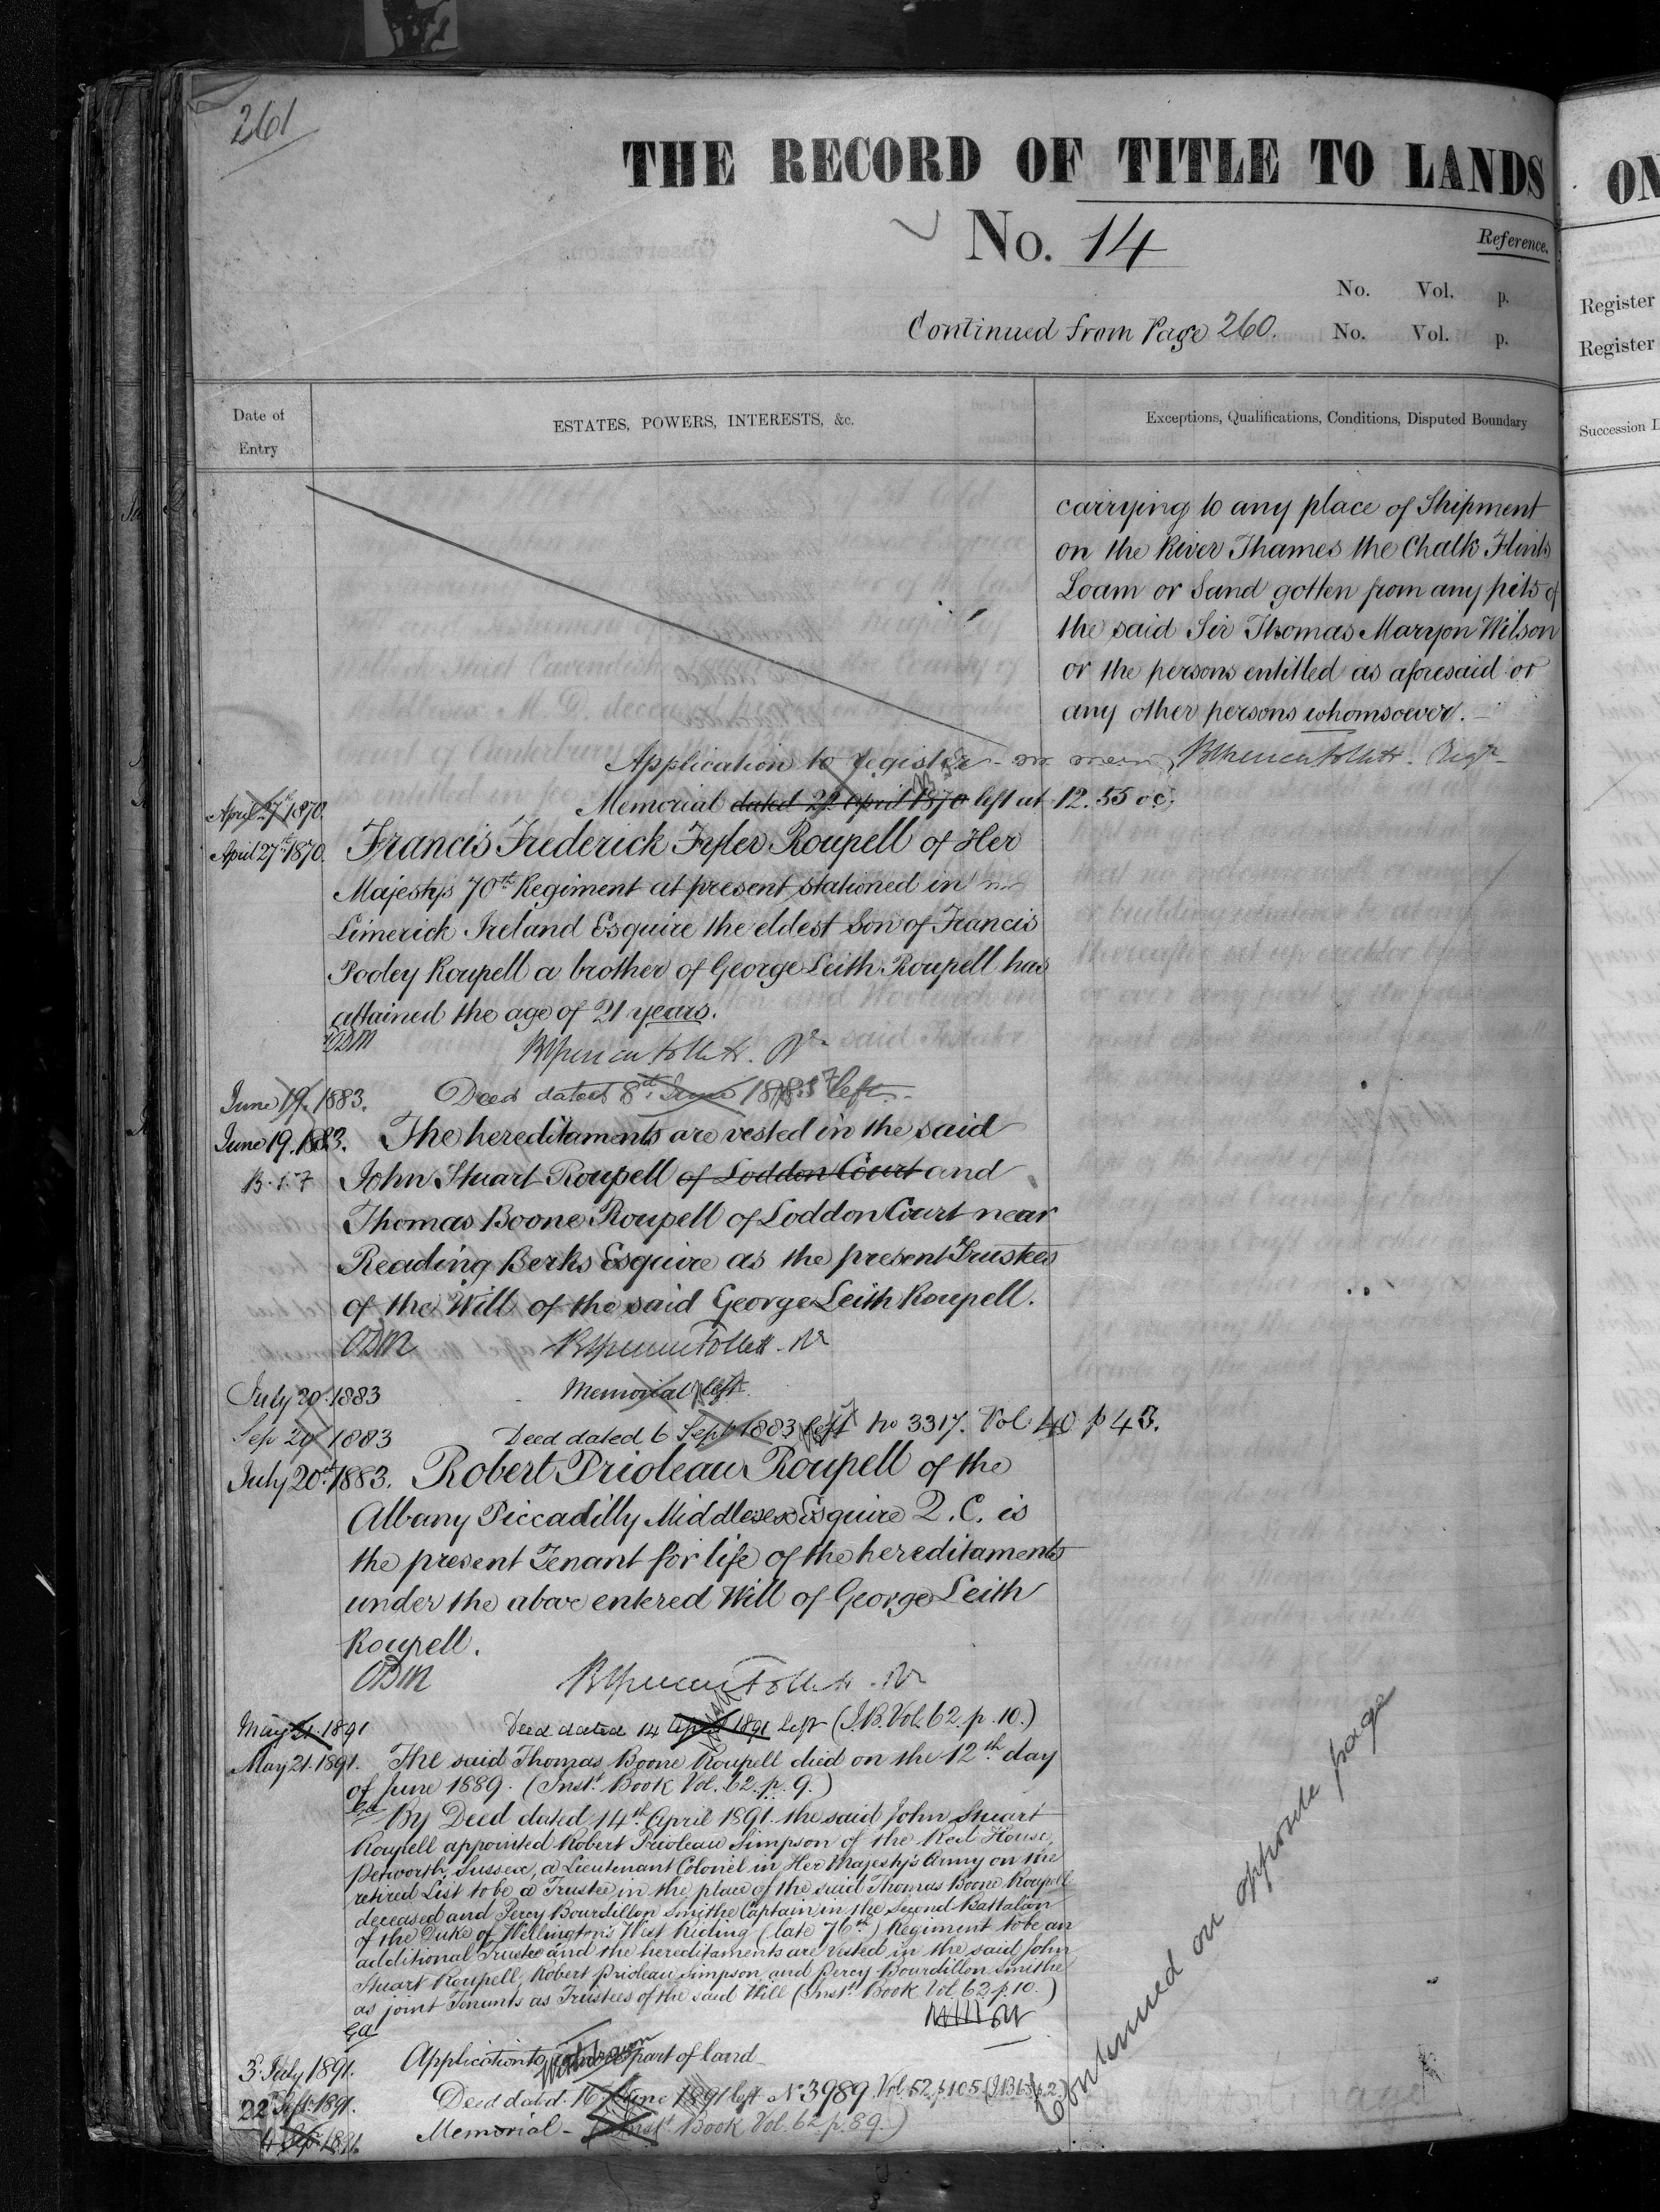 261
THE RECORD OF TITLE TO LANDS
No. 14
Reference.
No. Vol. p.
Continued from Page 260. No. Vol. p.
Date of Entry
ESTATES, POWERS, INTERESTS, &c.
Exceptions, Qualifications, Conditions, Disputed Boundary
carrying to any place of Shipment
on the River Thames the Chalk Flints
Loam or Sand gotten from any pits of
the said Sir Thomas Maryon Wilson
or the persons entitled as aforesaid or
any other persons whomsoever.
Application to register
April 27th 1870. Memorial dated 27 April 1870 left at 12.55
April 27th 1870. Francis Frederick Fyler Roupell of Her
Majestys 70th Regiment at present stationed in
Limerick Ireland Esquire the eldest Son of Francis
Pooley Roupell a brother of George Leith Roupell has
attained the age of 21 years.
ODM
June 19. 1883. Deed dated 8th June 1883 left
June 19. 1883. The hereditaments are vested in the said
John Stuart Roupell of Loddon Court and
Thomas Boone Roupell of Loddon Court near
Reading Berks Esquire as the present Trustees
of the Will of the said George Leith Roupell.
ODM
July 20. 1883 Memorial left
Sep 20 1883 Deed dated 6 Sept 1883 left No 3317. Vol 40 p 43.
July 20th 1883. Robert Prioleau Roupell of the
Albany Piccadilly Middlesex Esquire Q.C. is
the present Tenant for life of the hereditaments
under the above entered Will of George Leith
Roupell.
ODM
May 21. 1891 Deed dated 14 April 1891 left (I.B. Vol. 62. p. 10.)
May 21. 1891. The said Thomas Boone Roupell died on the 12th day
of June 1889. (Inst. Book Vol. 62. p. 9.)
By Deed dated 14th April 1891 the said John Stuart
Roupell appointed Robert Prioleau Simpson of the Red House,
Petworth, Sussex, a Lieutenant Colonel in Her Majesty's Army on the
retired List to be a Trustee in the place of the said Thomas Boone Roupell
deceased and Percy Bourdillon Smithe Captain in the Second Battalion
of the Duke of Wellington's West Riding (late 76th) Regiment to be an
additional Trustee and the hereditaments are vested in the said John
Stuart Roupell, Robert Prioleau Simpson and Percy Bourdillon Smithe
as joint Tenants as Trustees of the said Will (Inst. Book Vol. 62 p. 10.)
3 July 1891. Application to part of land
withdrawn
22 Sept. 1891. Deed dated 16 June 1891 left No 3989 Vol. 52 p 105
4 Sep. 1891. Memorial - (Inst. Book Vol. 62. p. 89.)
Continued on opposite page
ON
Register
Register
Succession